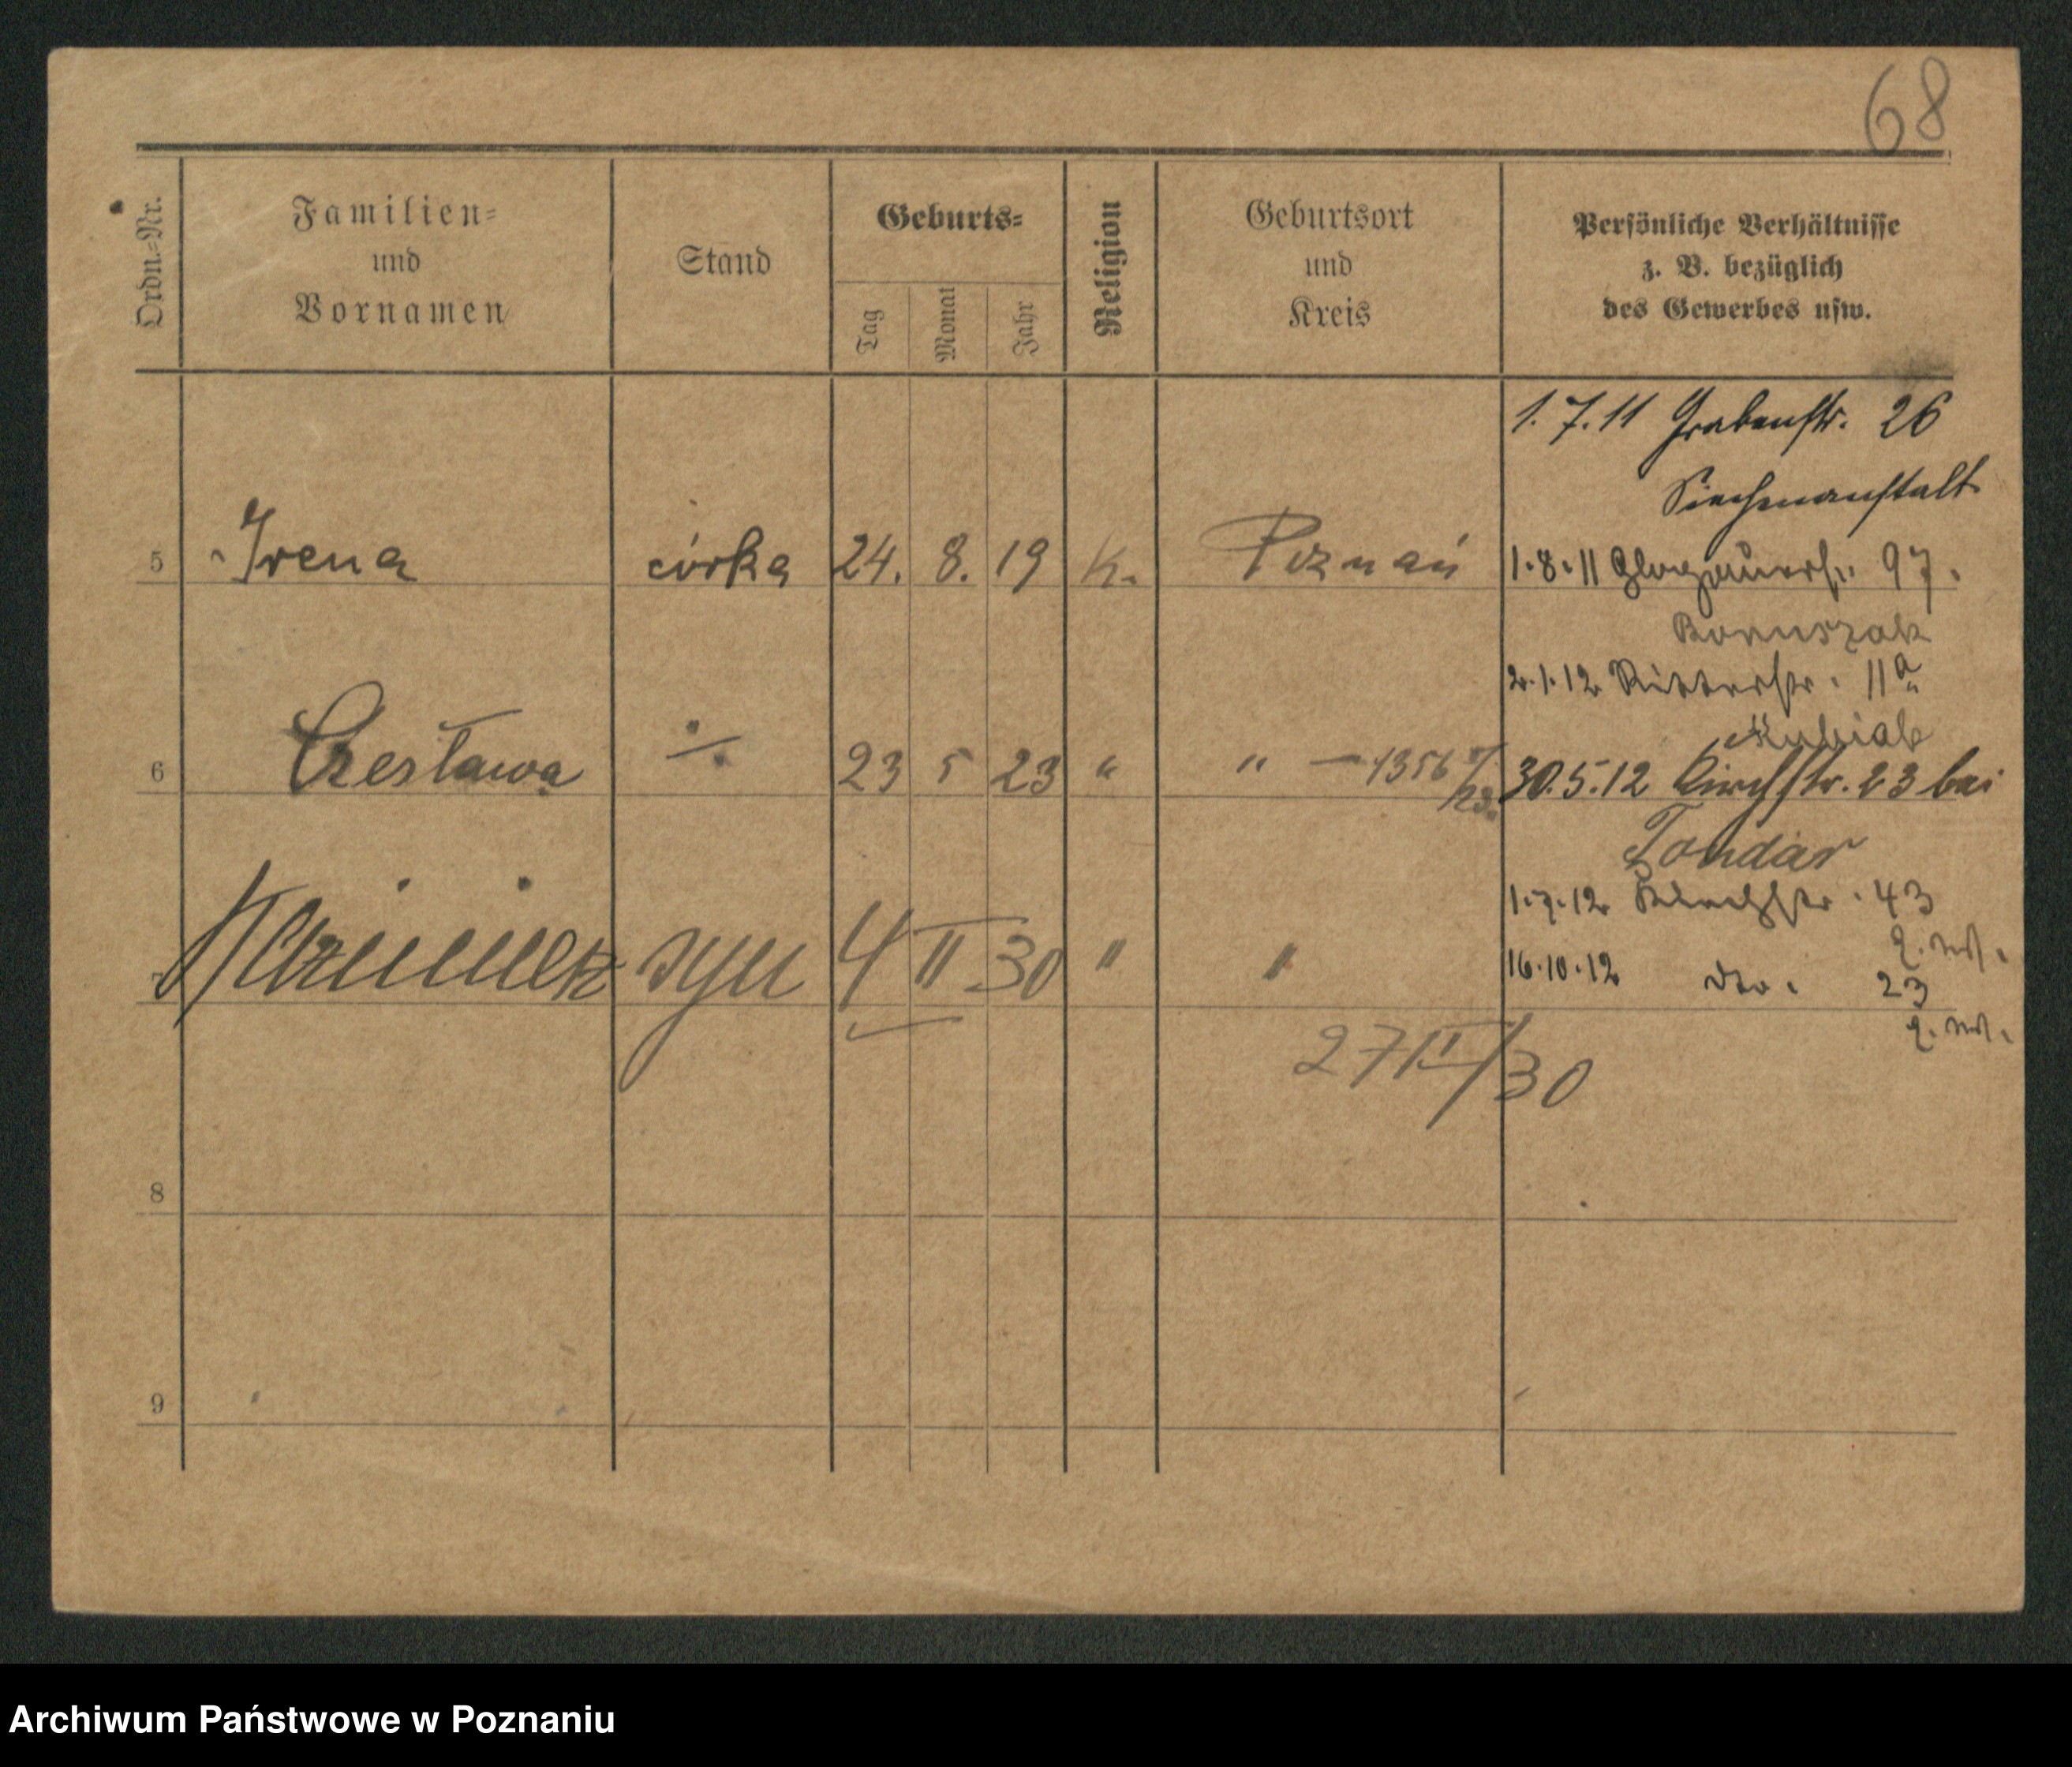 68
Ordn.=Nr.
Familien=
und
Vornamen
Stand
Geburts=
Tag
Monat
Jahr
Religion
Geburtsort
und
Kreis
Persönliche Verhältnisse
z. B. bezüglich
des Gewerbes usw.
1.7.11 Grabenstr. 26
Siechenanstalt
5 Irena córka 24. 8. 19 K. Poznań
1.8.11 Glogauerstr. 97.
2.1.12 Ritterstr. 11a
Kubiak
6 Czesława 23 5 23 " " — 1356
30.5.12 Kirchstr. 23 bei
Tondar
1.7.12 43
7 Kazimierz syn 4 II 30 " "
16.10.12 dto. 23
27 II/30
8
9
Archiwum Państwowe w Poznaniu